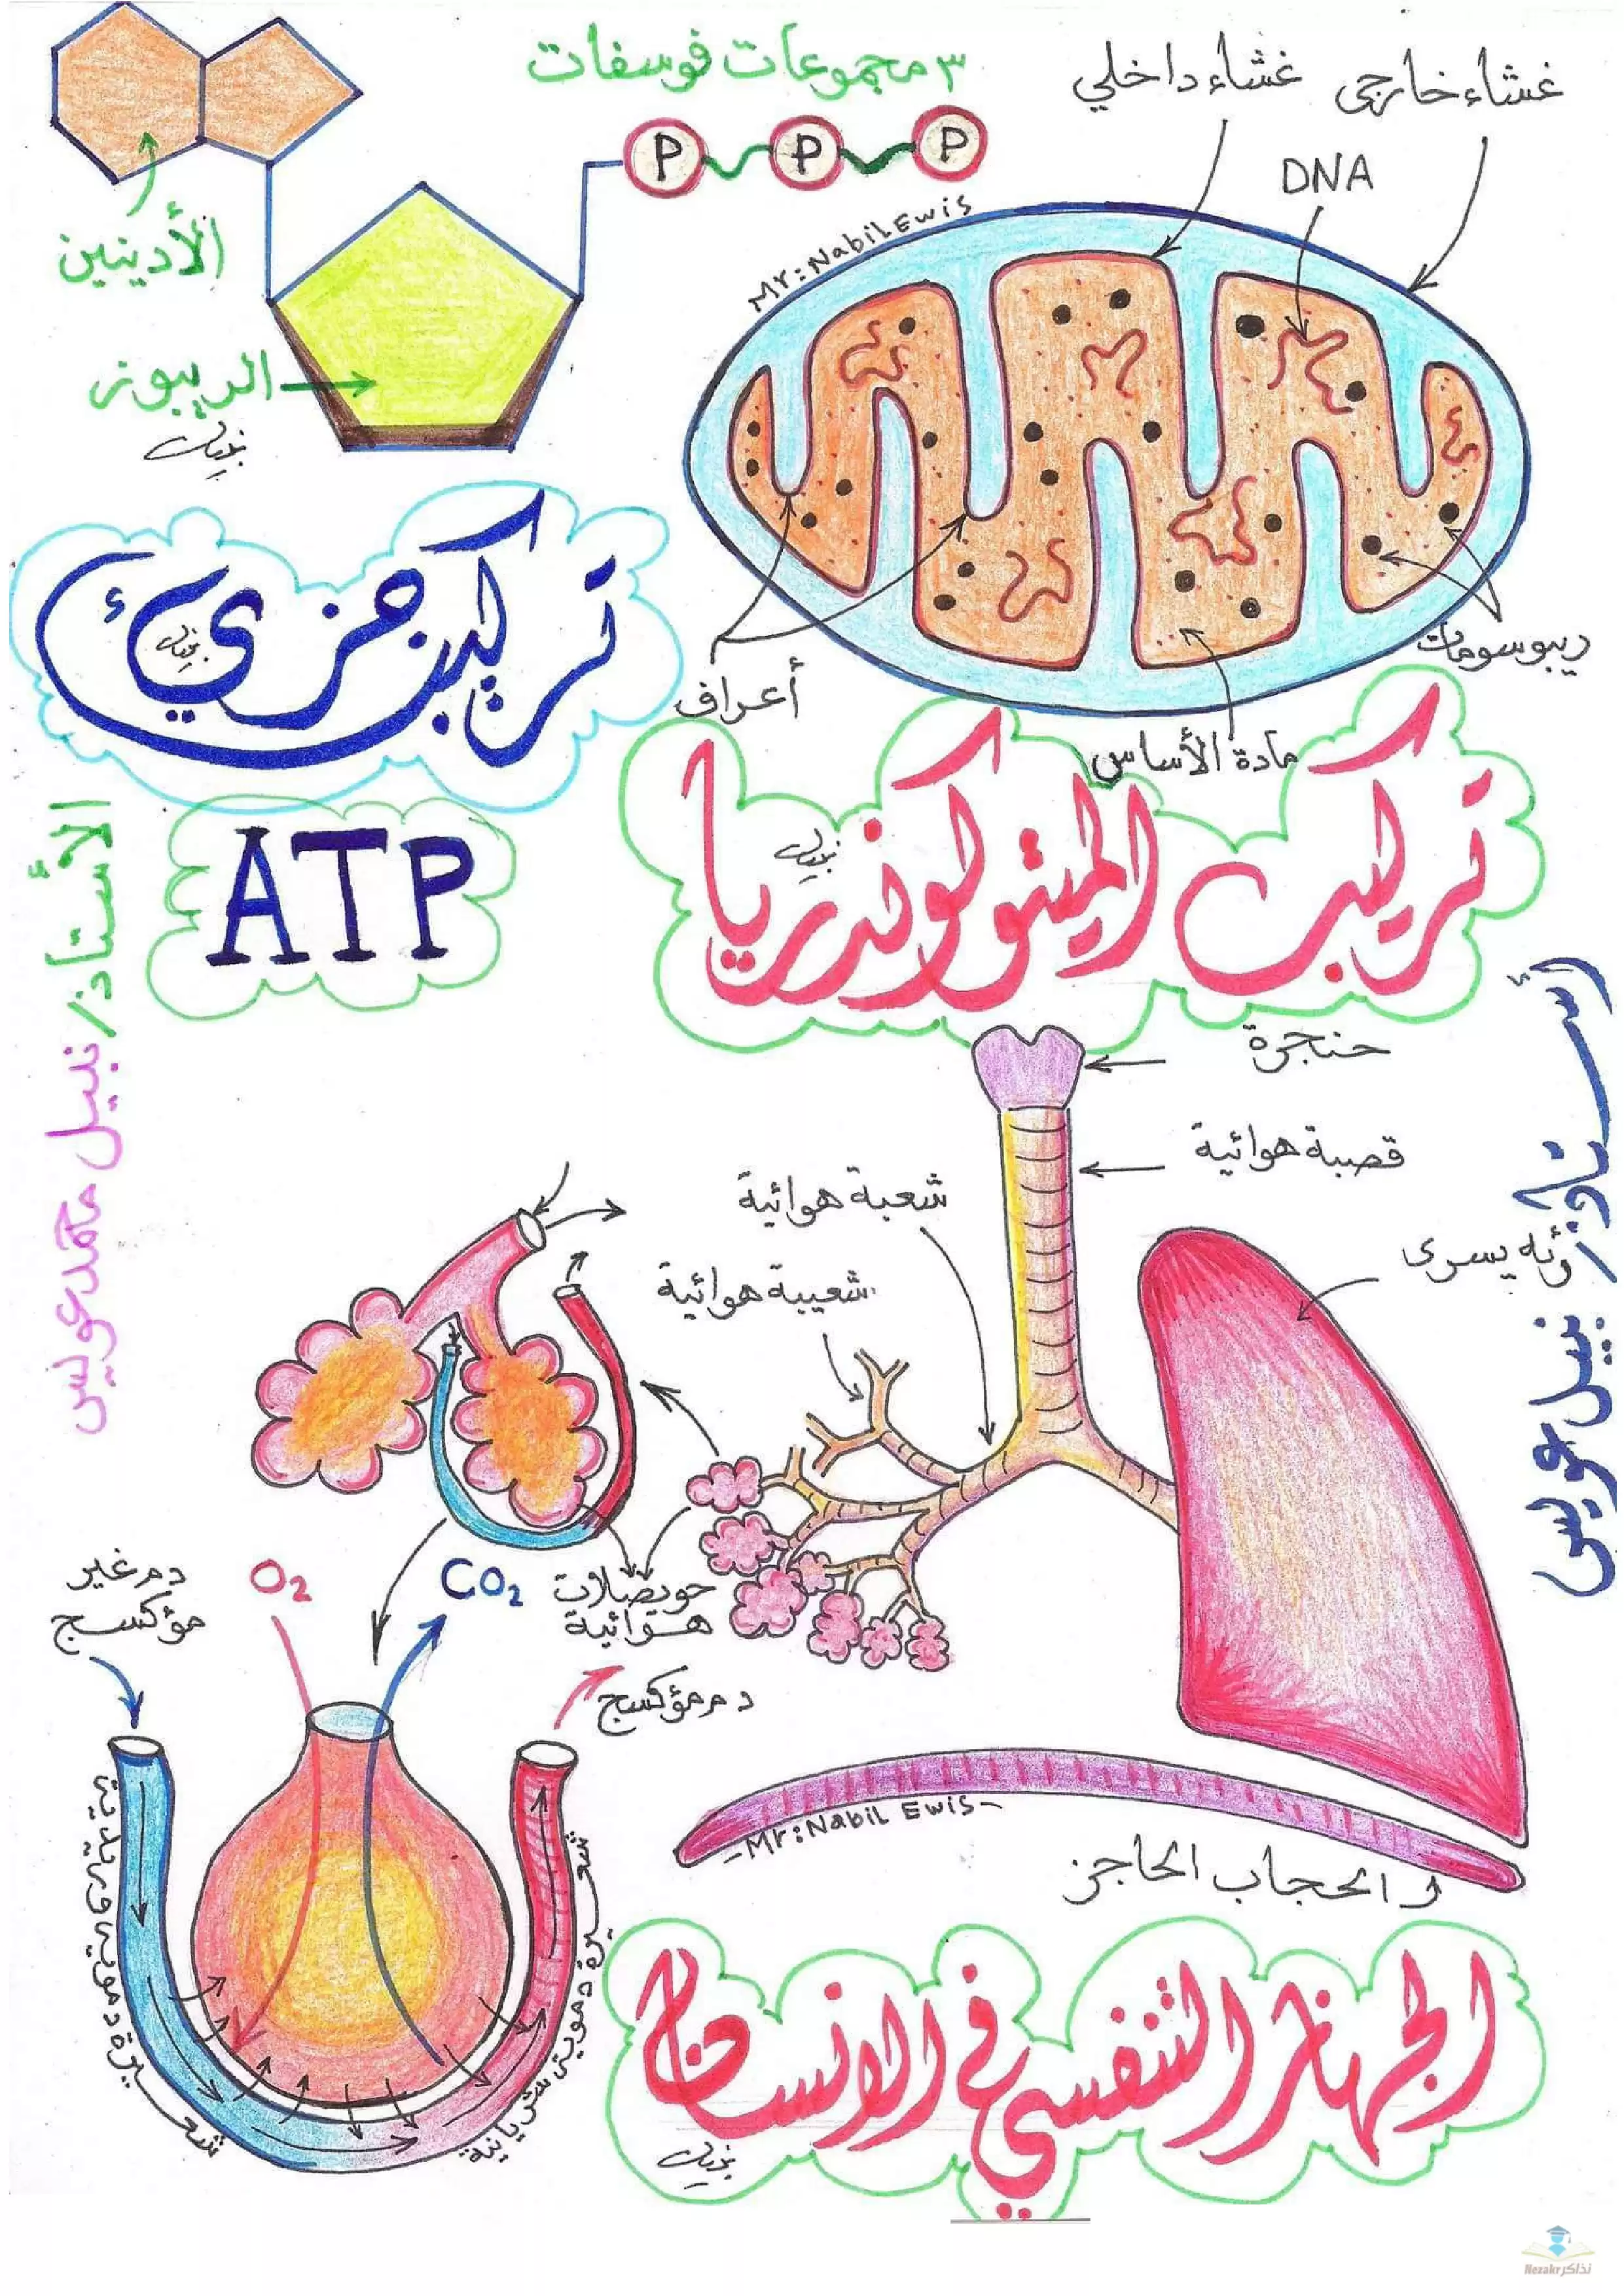 ٣ مجموعات فوسفات
P P P
الأدينين
الريبوز
نبيل
تركيب جزيء
نبيل
ATP
غشاء خارجى
غشاء داخلي
DNA
Mr: Nabil Ewis
أعراف
ريبوسومات
مادة الأساس
تركيب الميتوكوندريا
نبيل
الأستاذ/ نبيل محمد عويس
أستاذ/ نبيل عويس
حنجرة
قصبة هوائية
شعبة هوائية
شعيبة هوائية
رئه يسرى
حويصلات
هوائية
دم غير
مؤكسج
O2
CO2
دم مؤكسج
شعيرة دموية وريدية
شعيرة دموية شريانية
- Mr: Nabil Ewis -
الحجاب الحاجز
الجهاز التنفسي في الانسان
نبيل
نذاكر Nezakr